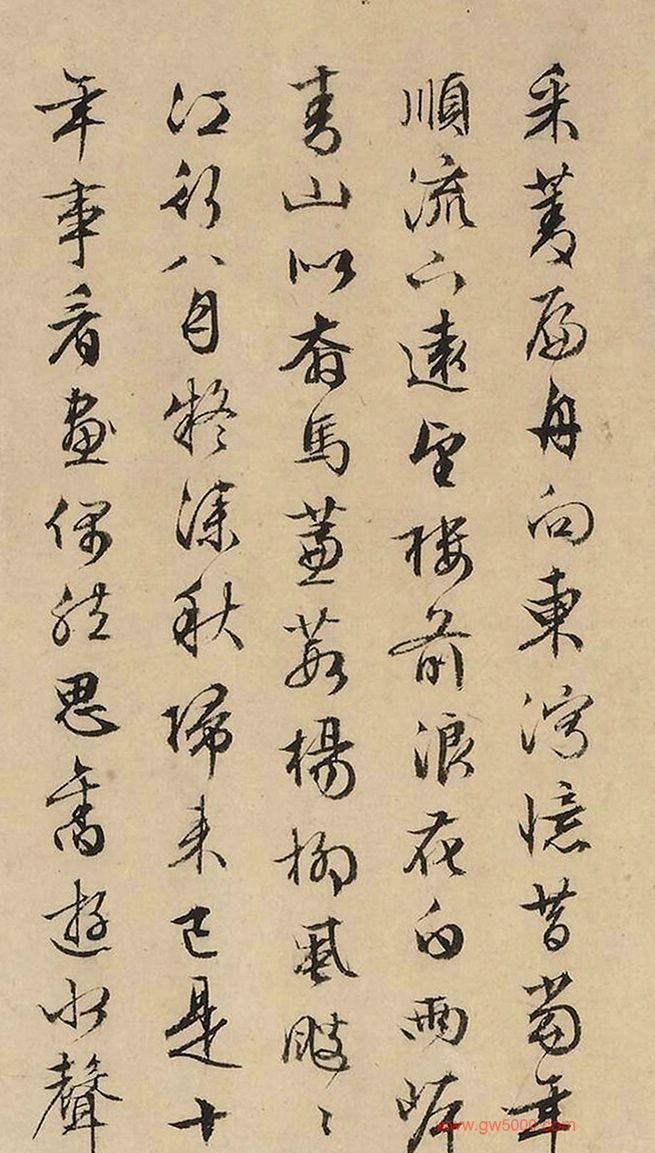 采菱扁舟向東灣憶昔當年
順流下遠望樓前浪花白兩岸
青山似奔馬蘆葭楊柳風颼〻
江行八月疑深秋歸來已是十
年事看畫偶然思舊遊水聲
www.gw5000.com